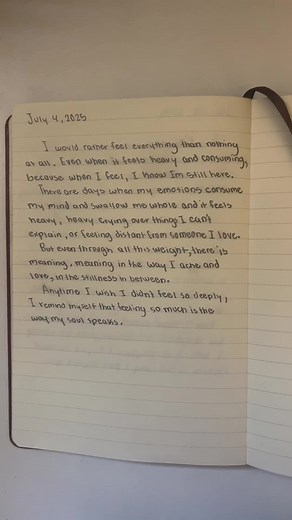 July 4, 2025
I would rather feel everything than nothing
at all. Even when it feels heavy and consuming,
because when I feel, I know Im still here.
There are days when my emotions consume
my mind and swallow me whole and it feels
heavy, heavy crying over things I can't
explain, or feeling distant from someone I love.
But even through all this weight, there is
meaning, meaning in the way I ache and
love, in the stillness in between.
Anytime I wish I didn't feel so deeply,
I remind myself that feeling so much is the
way my soul speaks.